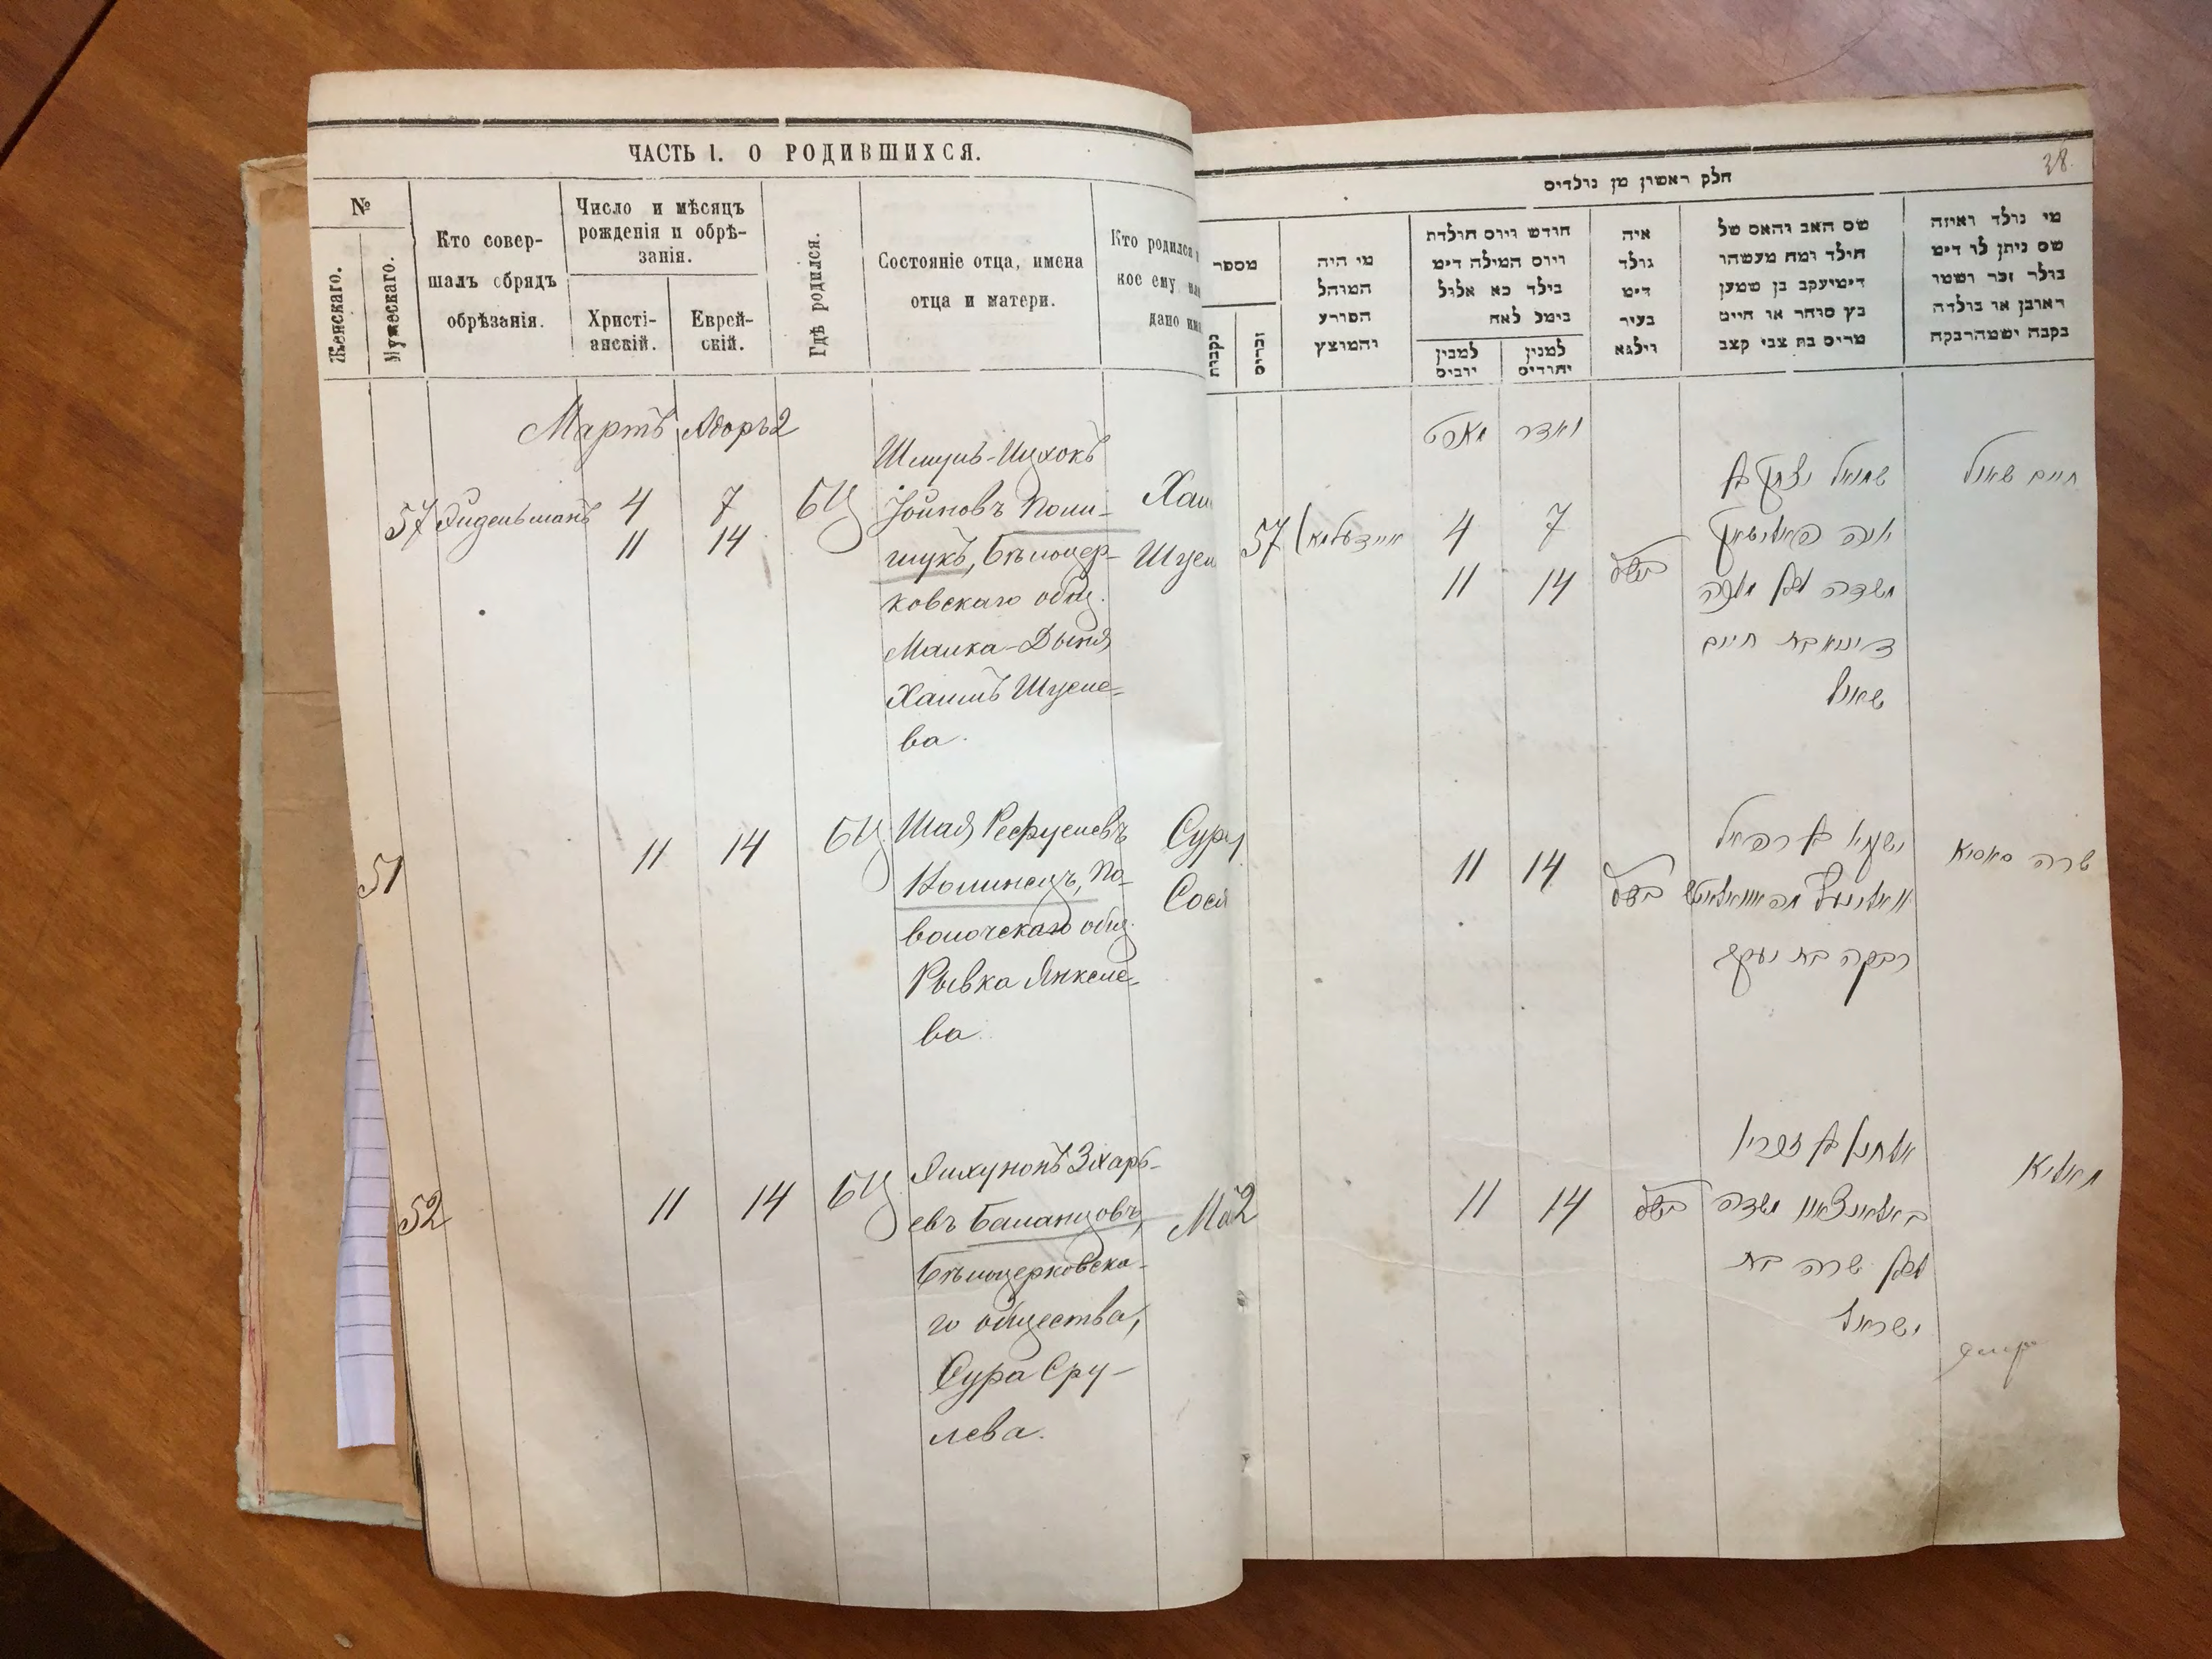 ЧАСТЬ 1. О РОДИВШИХСЯ.
№
Женскаго.
Мужескаго.
Кто совер-
шалъ обрядъ
обрѣзанія.
Число и мѣсяцъ
рожденія и обрѣ-
занія.
Христі-
анскій.
Еврей-
скій.
Гдѣ родился.
Состояніе отца, имена
отца и матери.
Кто родился
кое ему
дано
Мартъ Адоръ 2
57 4 7 БЦ
11 14
Шмуль-Ицхокъ
Іойновъ Поли-
щукъ, Бѣлоцер-
ковскаго общ.
Малка-Дыня
Хаимъ Шуле-
ва.
Хаи
51 11 14 БЦ
Шая Рефулевъ
Волинецъ, По-
волочскаго общ.
Рывка Янкеле-
ва.
Сура
Сося
52 11 14 БЦ
Элхунонъ Зхарь-
евъ Баланцовъ,
Бѣлоцерковска-
го общества,
Сура Сру-
лева.
38.
חלק ראשון מן נולדים
מספר
נקבות
זכרים
מי היה
המוהל
הפורע
והמוצץ
חודש ויום הולדת
ויום המילה דימ
בילד כא אלול
בימל לאח
למנין
יהודים
איה
נולד
דימ
בעיר
ווילנא
שם האב והאם של
הילד ומה מעשהו
דימיעקב בן שמען
בץ סוחר או חייט
מרים בת צבי קצב
מי נולד ואיזה
שם ניתן לו דימ
בולר זכר ושמו
ראובן או בולדה
נקבה ושמהרבקה
ואדר מארט
57 4 7
11 14
שמואל יצחק בן
יונה פאלישוק
חיים
שאול
חיים שאול
11 14
ישעיא בן רפאל
רבקה בת יעקב
שרה סאסיא
2 11 14
אלחנן בן זכריו
שרה בת
ישראל
מאליא